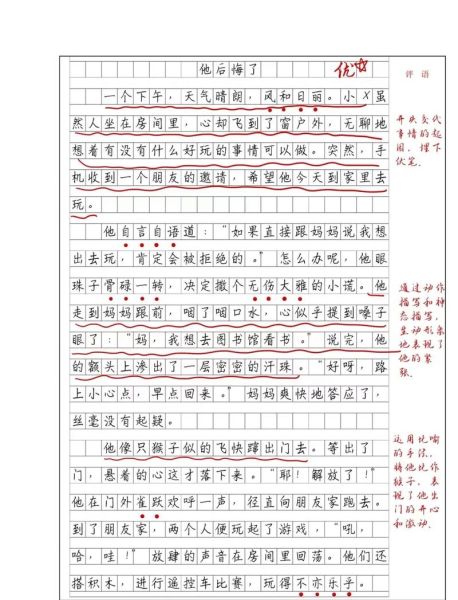 他后悔了
优
评语
一个下午，天气晴朗，风和日丽。小X虽
然人坐在房间里，心却飞到了窗户外，无聊地
想着有没有什么好玩的事情可以做。突然，手
机收到一个朋友的邀请，希望他今天到家里去
玩。
开头交代
事情的起
因，埋下
伏笔。
他自言自语道：“如果直接跟妈妈说我想
出去玩，肯定会被拒绝的。”怎么办呢，他眼
珠子骨碌一转，决定撒个无伤大雅的小谎。他
走到妈妈跟前，咽了咽口水，心似乎提到嗓子
眼了：“妈，我想去图书馆看书。”说完，他
的额头上渗出了一层密密的汗珠。“好呀，路
上小心点，早点回来。”妈妈爽快地答应了，
丝毫没有起疑。
通过动作
描写和神
态描写，
生动形象
地表现了
他的紧
张。
他像只猴子似的飞快蹿出门去。等出了
门，悬着的心这才落下来。“耶！解放了！”
他在门外雀跃欢呼一声，径直向朋友家跑去。
到了朋友家，两个人便玩起了游戏，“吼，
哈，哇！”放肆的声音在房间里回荡。他们还
搭积木，进行遥控车比赛，玩得不亦乐乎。
运用比喻
的手段，
将他比作
猴子，表
现了他出
门的开心
和激动。